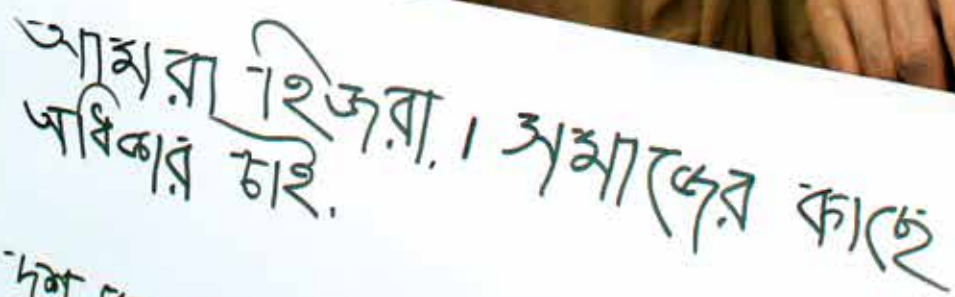 আমরা হিজরা। সমাজের কাছে
অধিকার চাই.